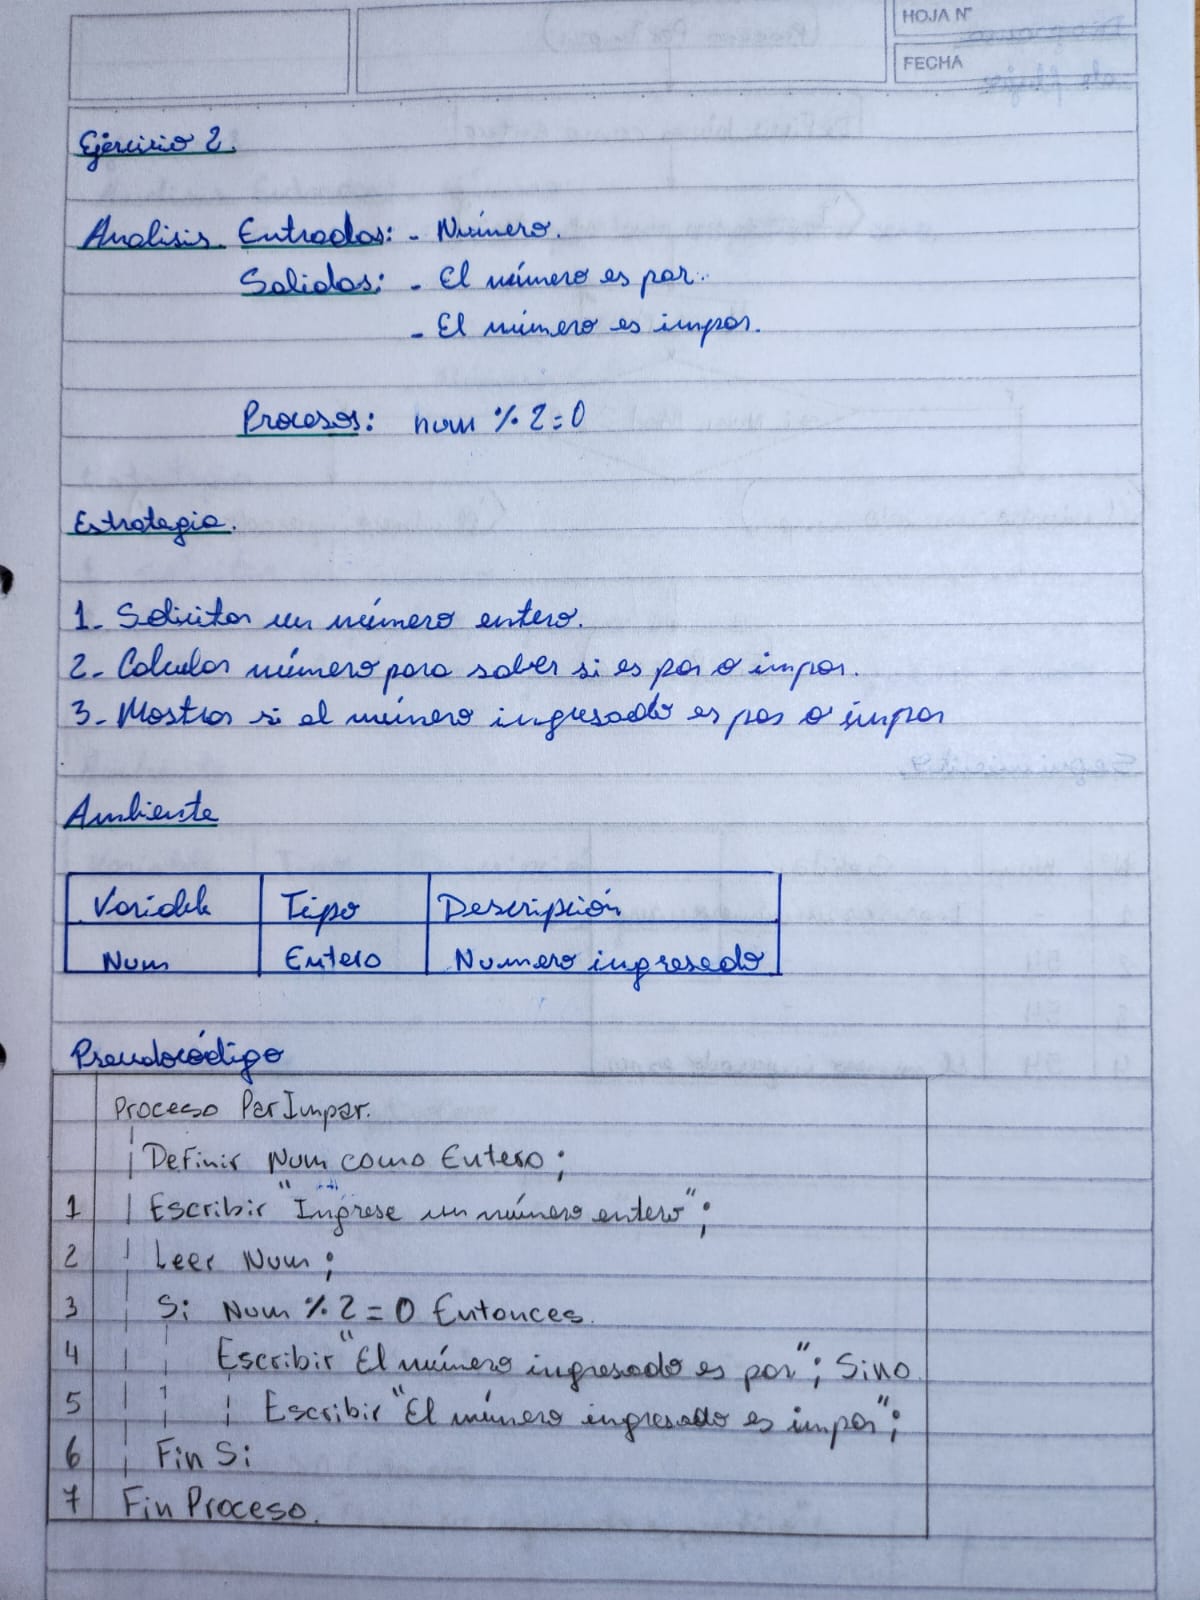 HOJA N°
FECHA
Ejercicio 2.
Analisis. Entradas: - Número.
Salidas: - El número es par.
- El número es impar.
Procesos: num % 2=0
Estrategia.
1- Solicitar un número entero.
2- Calcular número para saber si es par o impar.
3- Mostrar si el número ingresado es par o impar
Ambiente
Variable Tipo Descripción
Num Entero Numero ingresado
Pseudocódigo
Proceso ParImpar.
Definir Num como Entero;
1 Escribir "Ingrese un número entero";
2 Leer Num;
3 Si Num % 2=0 Entonces.
4 Escribir "El número ingresado es par"; Sino
5 Escribir "El número ingresado es impar";
6 Fin Si
7 Fin Proceso.